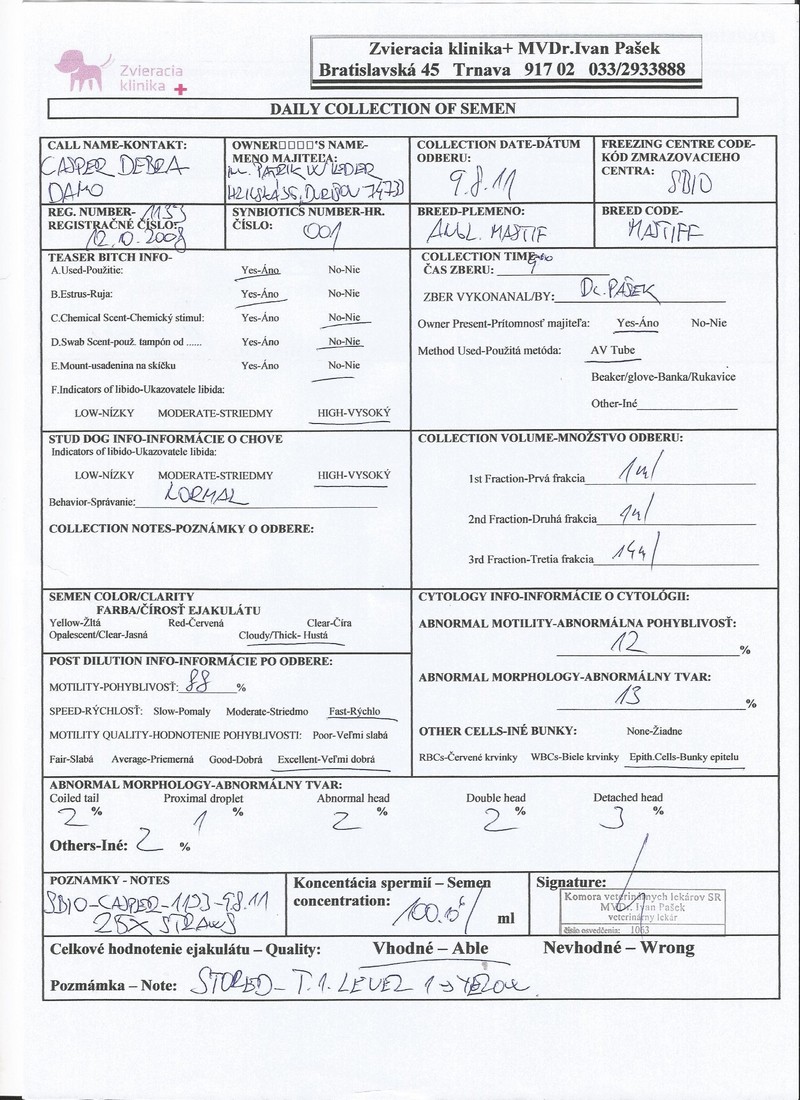 Zvieracia klinika+ MVDr.Ivan Pašek
Bratislavská 45 Trnava 917 02 033/2933888
Zvieracia
klinika +
DAILY COLLECTION OF SEMEN
CALL NAME-KONTAKT:
CASPER DEBRA
DAMO
OWNER□□□□'S NAME-
MENO MAJITEĽA:
PATRIK
COLLECTION DATE-DÁTUM
ODBERU:
9.8.11
FREEZING CENTRE CODE-
KÓD ZMRAZOVACIEHO
CENTRA:
SBIO
REG. NUMBER- 1133
REGISTRAČNÉ ČÍSLO:
12.10.2008
SYNBIOTICS NUMBER-HR.
ČÍSLO: 001
BREED-PLEMENO:
ANGL. MASTIF
BREED CODE-
MASTIFF
TEASER BITCH INFO-
A.Used-Použitie: Yes-Áno No-Nie
B.Estrus-Ruja: Yes-Áno No-Nie
C.Chemical Scent-Chemický stimul: Yes-Áno No-Nie
D.Swab Scent-použ. tampón od ...... Yes-Áno No-Nie
E.Mount-usadenina na skíčku Yes-Áno No-Nie
F.Indicators of libido-Ukazovatele libida:
LOW-NÍZKY MODERATE-STRIEDMY HIGH-VYSOKÝ
COLLECTION TIME-
ČAS ZBERU:
ZBER VYKONANAL/BY: Dr. PAŠEK
Owner Present-Prítomnosť majiteľa: Yes-Áno No-Nie
Method Used-Použitá metóda: AV Tube
Beaker/glove-Banka/Rukavice
Other-Iné
STUD DOG INFO-INFORMÁCIE O CHOVE
Indicators of libido-Ukazovatele libida:
LOW-NÍZKY MODERATE-STRIEDMY HIGH-VYSOKÝ
Behavior-Správanie: NORMAL
COLLECTION NOTES-POZNÁMKY O ODBERE:
COLLECTION VOLUME-MNOŽSTVO ODBERU:
1st Fraction-Prvá frakcia 1ml
2nd Fraction-Druhá frakcia 1ml
3rd Fraction-Tretia frakcia
SEMEN COLOR/CLARITY
FARBA/ČÍROSŤ EJAKULÁTU
Yellow-Žltá Red-Červená Clear-Číra
Opalescent/Clear-Jasná Cloudy/Thick- Hustá
CYTOLOGY INFO-INFORMÁCIE O CYTOLÓGII:
ABNORMAL MOTILITY-ABNORMÁLNA POHYBLIVOSŤ:
12 %
ABNORMAL MORPHOLOGY-ABNORMÁLNY TVAR:
13 %
OTHER CELLS-INÉ BUNKY: None-Žiadne
RBCs-Červené krvinky WBCs-Biele krvinky Epith.Cells-Bunky epitelu
POST DILUTION INFO-INFORMÁCIE PO ODBERE:
MOTILITY-POHYBLIVOSŤ: 88 %
SPEED-RÝCHLOSŤ: Slow-Pomaly Moderate-Striedmo Fast-Rýchlo
MOTILITY QUALITY-HODNOTENIE POHYBLIVOSTI: Poor-Veľmi slabá
Fair-Slabá Average-Priemerná Good-Dobrá Excellent-Veľmi dobrá
ABNORMAL MORPHOLOGY-ABNORMÁLNY TVAR:
Coiled tail Proximal droplet Abnormal head Double head Detached head
2 % 1 % 2 % 2 % 3 %
Others-Iné: 2 %
POZNAMKY - NOTES
SBIO-CASPER-1133-9.8.11
28X STRAWS
Koncentácia spermií – Semen
concentration: ml
Signature:
Komora veterinárnych lekárov SR
MVDr. Ivan Pašek
veterinárny lekár
číslo osvedčenia: 1063
Celkové hodnotenie ejakulátu – Quality: Vhodné – Able Nevhodné – Wrong
Pozmámka – Note: STORED- T.1. LEVEL 1